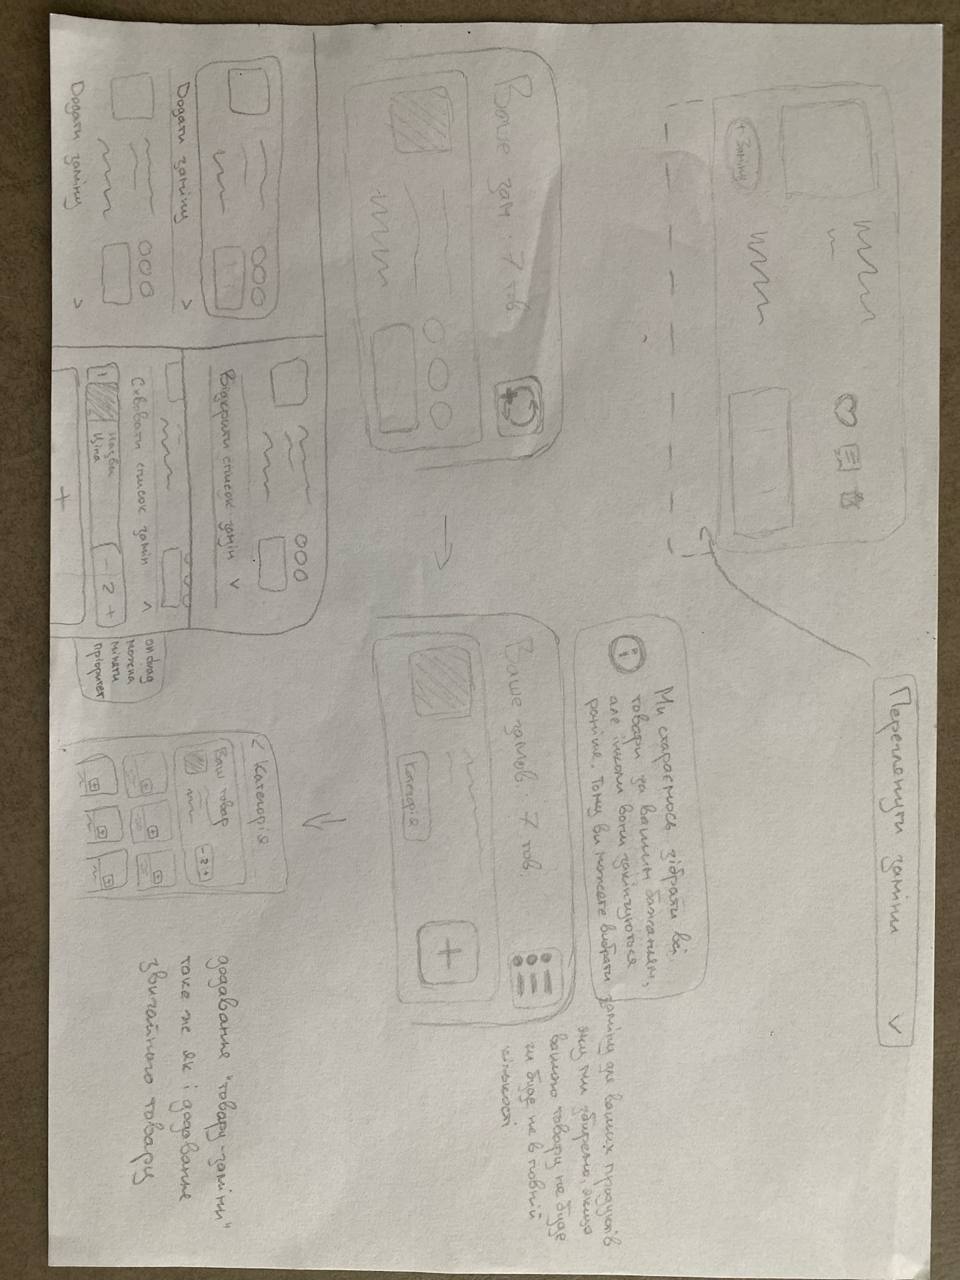 + заміну
Переглянути заміни
Ваше зам : 7 тов
Ми стараємось зібрати всі
товари за вашим бажанням,
але інколи вони закінчуються
раніше. Тому ви можете вибрати заміни для ваших продуктів
яку ми зберемо, якщо
вашого товару не буде
чи буде не в повній
кількості
Ваше замов : 7 тов.
Категорія
Додати заміну
Додати заміну
Відкрити список замін
Сховати список замін
1
Назва
Ціна
- 2 +
+
on drag
можна
міняти
пріоритет
< Категорія
Ваш товар
- 2 +
додавання "товару-заміни"
таке ж як і додавання
звичайного товару